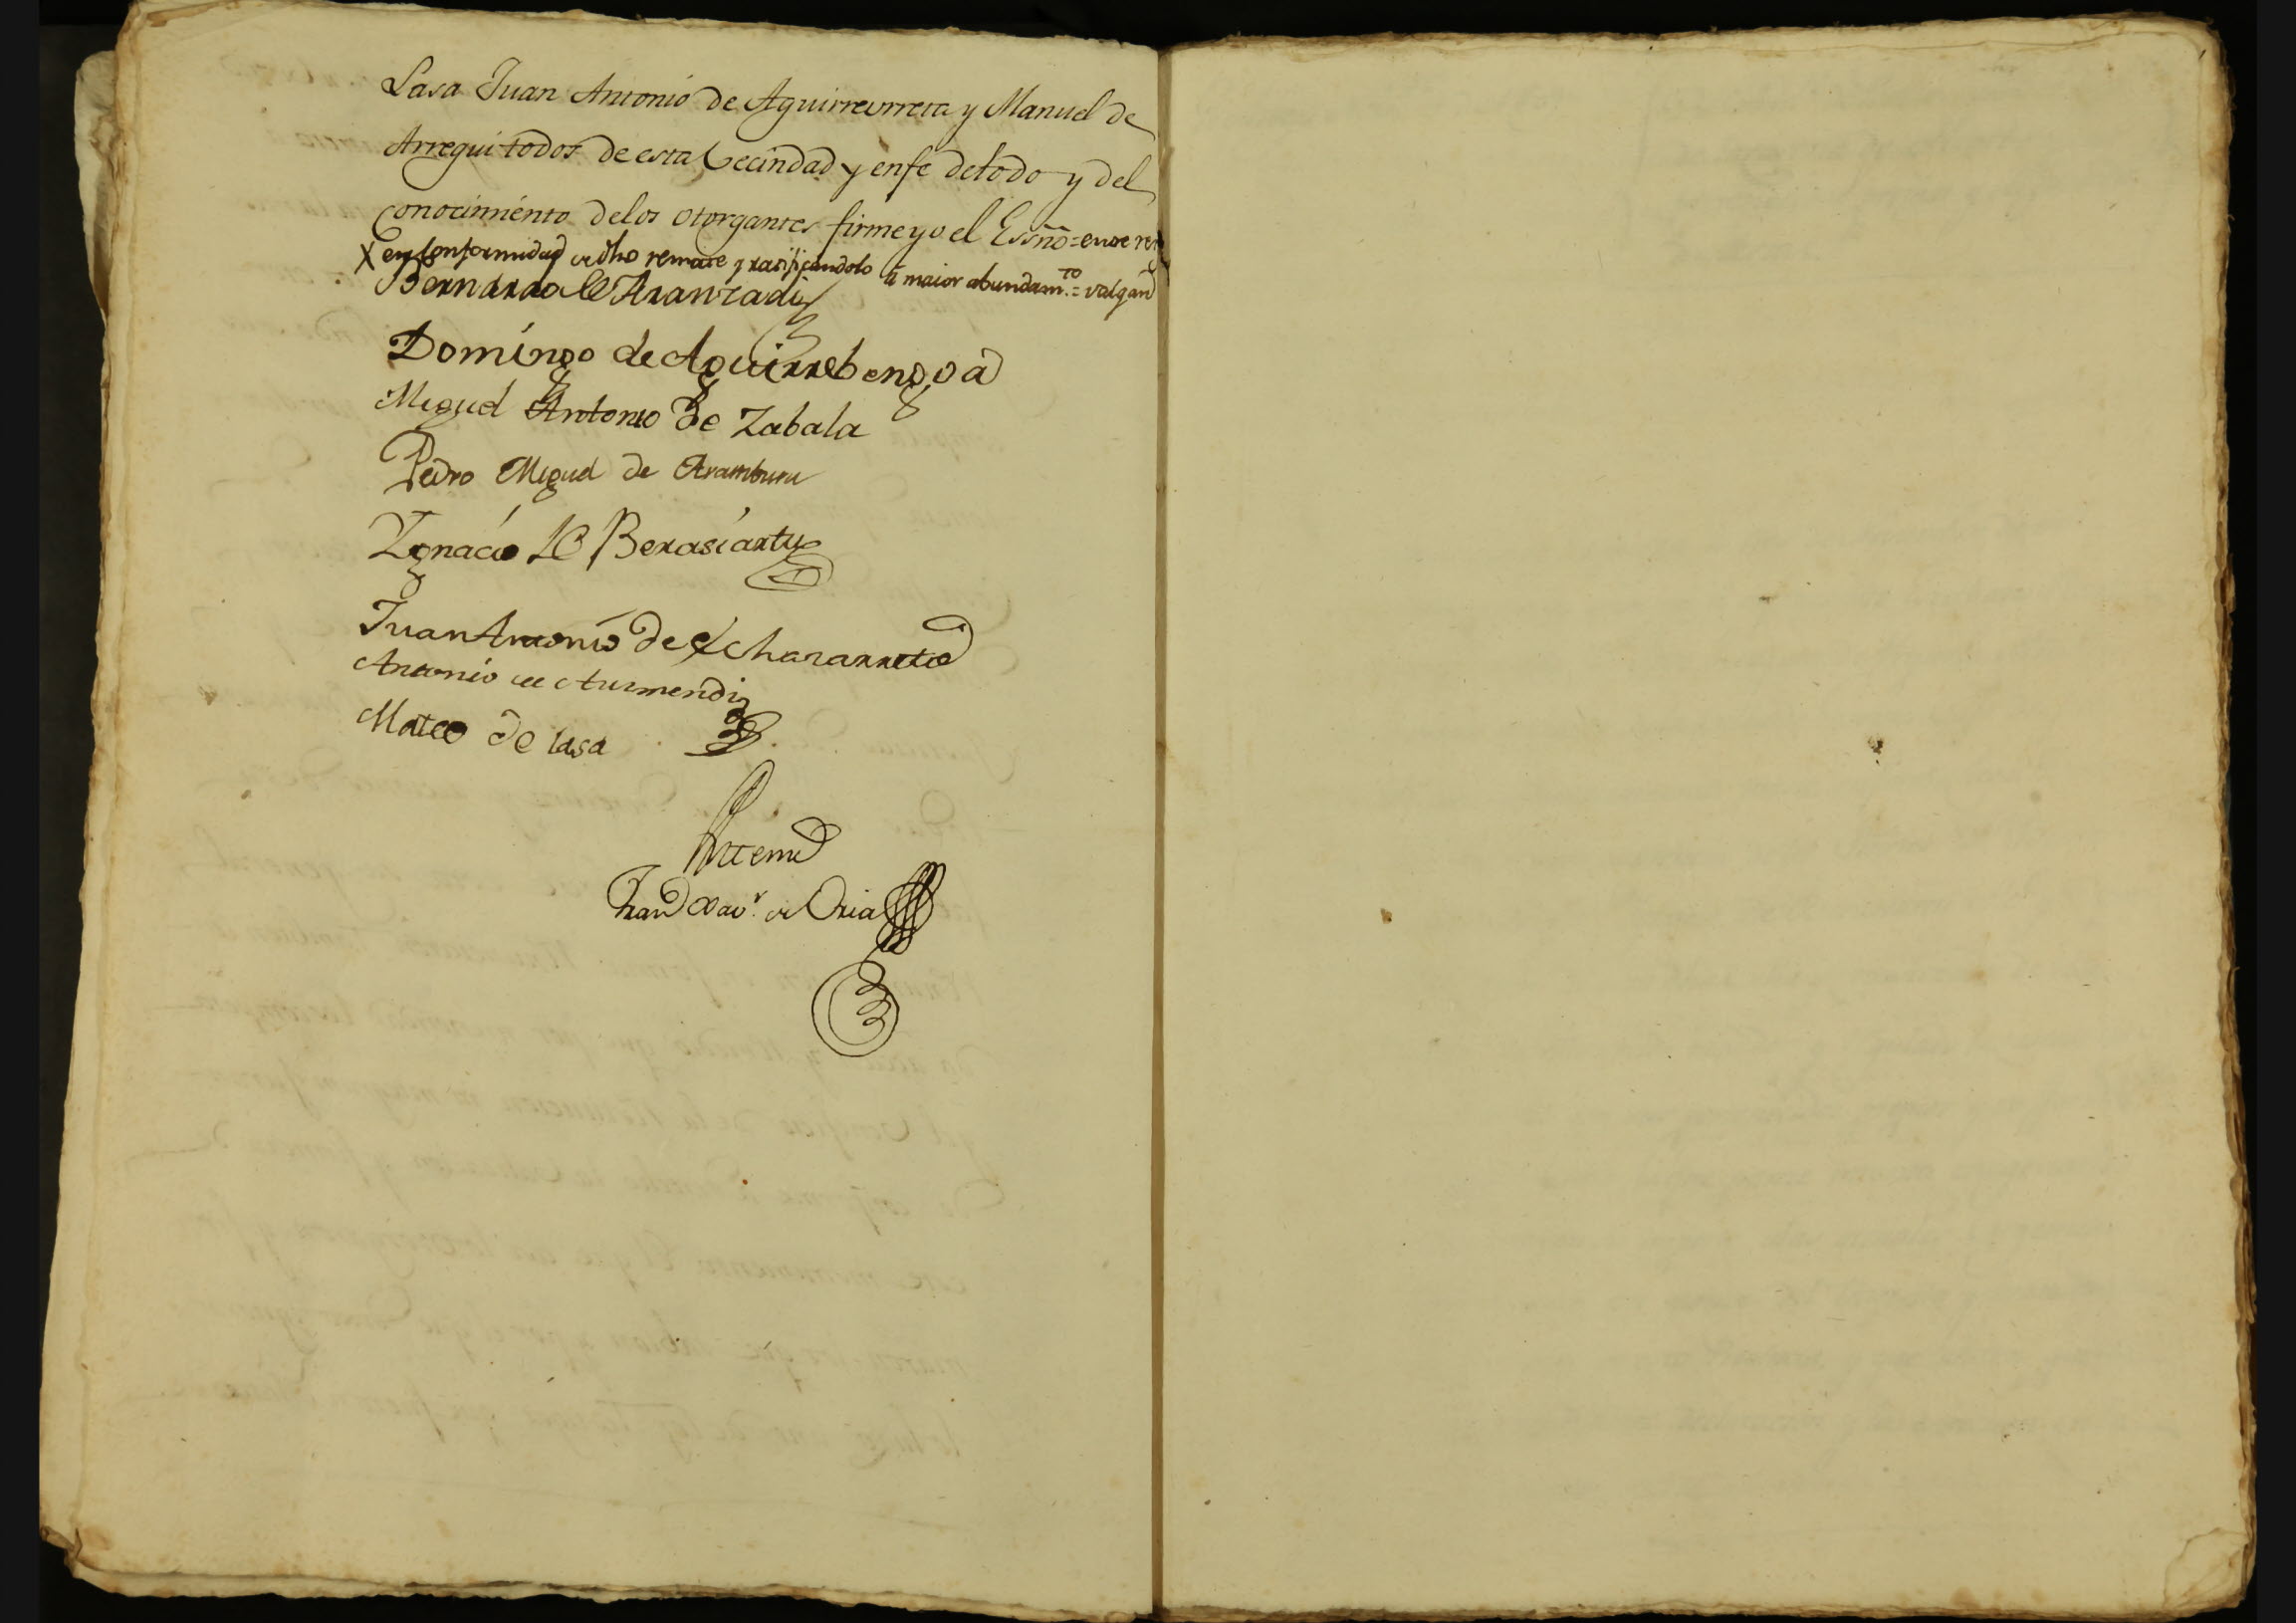 Lasa Juan Antonio de Aguirreurreta y Manuel de
Arregui todos de esta Vecindad y enfe detodo y del
Conocimiento delos otorgantes firme yo el Essño = entre ren
X en conformidad de dho remate y ratificandolo á maior abundam.to = valgan
Bernardo de Aranzadi
Domingo de Aguirrebengoa
Miguel Antonio de Zabala
Pedro Miguel de Aramburu
Ygnacio de Berasiartu
Juan Antonio de Echazarreta
Antonio de Aurmendi
Mateo de lasa
Antemi
Franco Xav.r de Oria